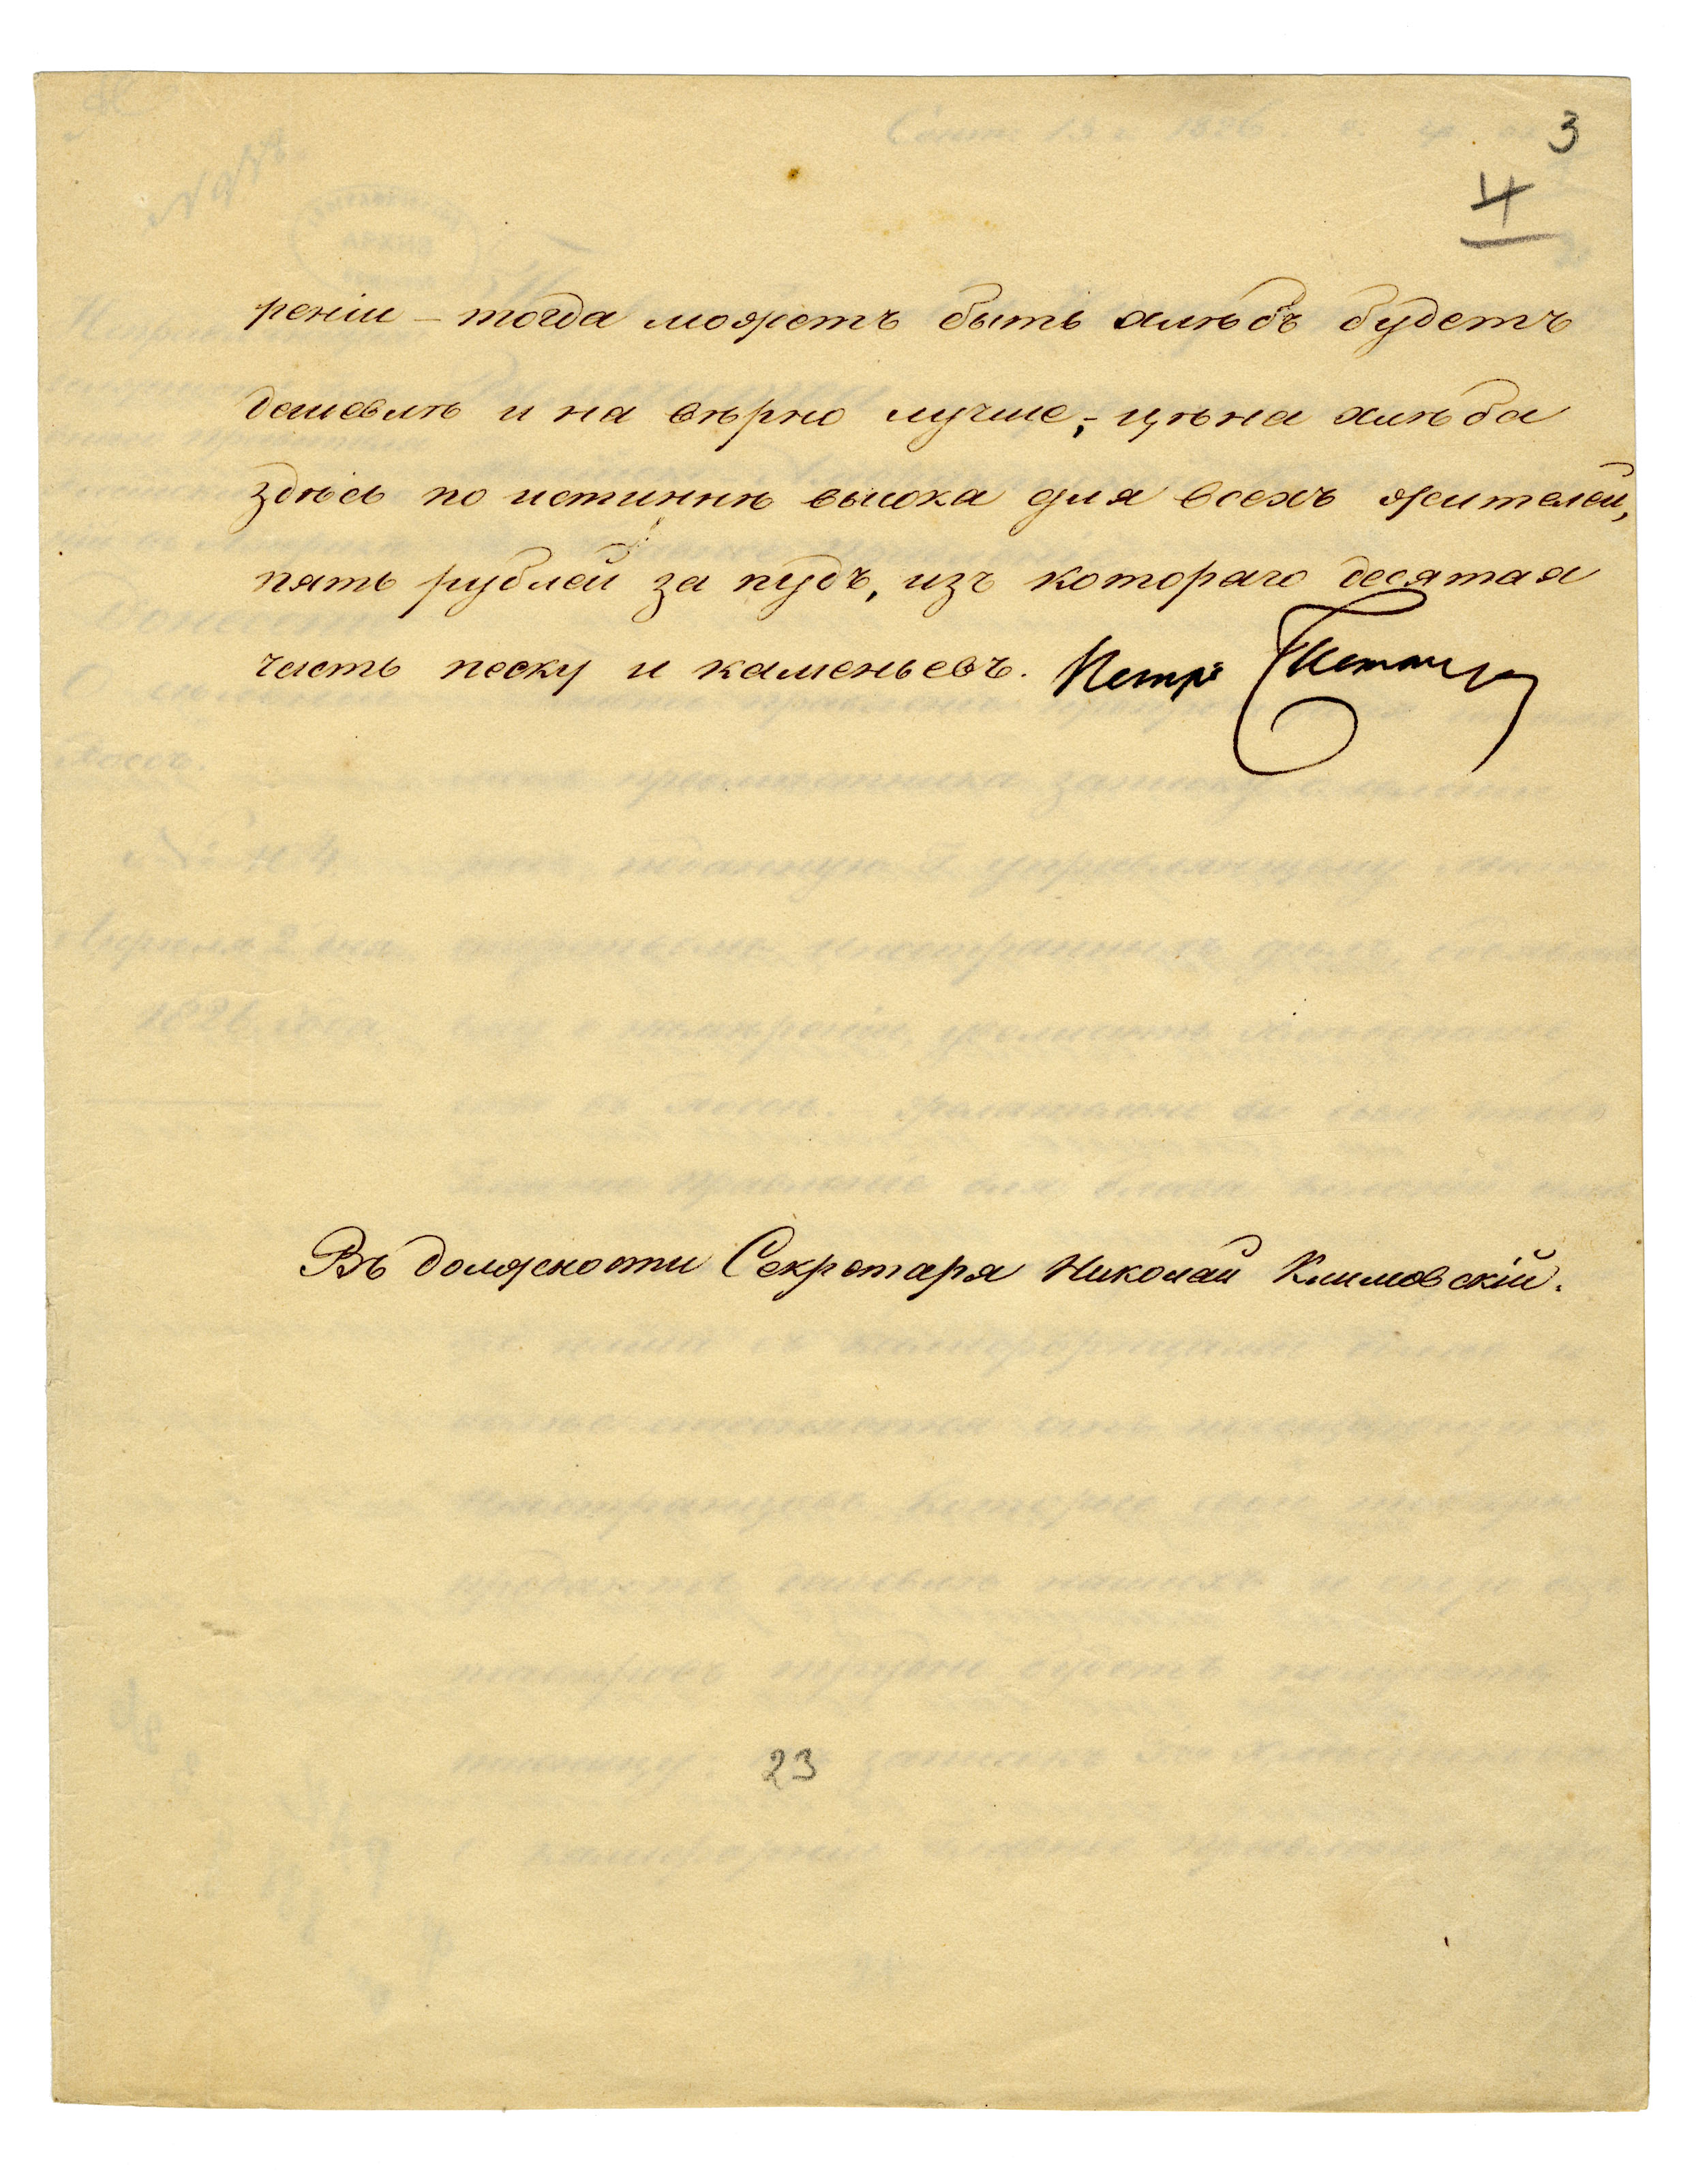 3
4
реніи – тогда можетъ быть хлѣбъ будетъ
дешевлѣ и на вѣрно лучше, – цѣна хлѣба
здѣсь по истиннѣ высока для всехъ жителей,
пять рублей за пудъ, изъ котораго десятая
часть песку и каменьевъ. Петръ
Въ должности Секретаря Николай Климовскій.
23